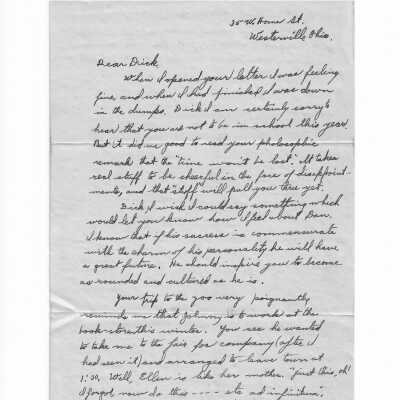 35 W. Home St.
Westerville Ohio.
Dear Dick,
When I opened your letter I was feeling
fine, and when I had finished I was down
in the dumps. Dick I am certainly sorry to
hear that you are not to be in school this year.
But it did me good to read your philosophic
remark that the "time won't be lost." It takes
real stuff to be cheerful in the face of disappoint-
ments, and that "stuff" will pull you thru yet.
Dick, I wish I could say something which
would let you know how I feel about Dan.
I know that if his success is commensurate
with the charm of his personality he will have
a great future. He should inspire you to become
as rounded and cultured as he is.
Your trip to the zoo very poignantly
reminds me that Johnny is to work at the
book-store this winter. You see he wanted
to take me to the fair for company (after I
had seen it) and arranged to leave town at
1:30. Well, Ellen is like her mother. "Just this, oh!
I forgot, now do this ---- etc ad infinitum".